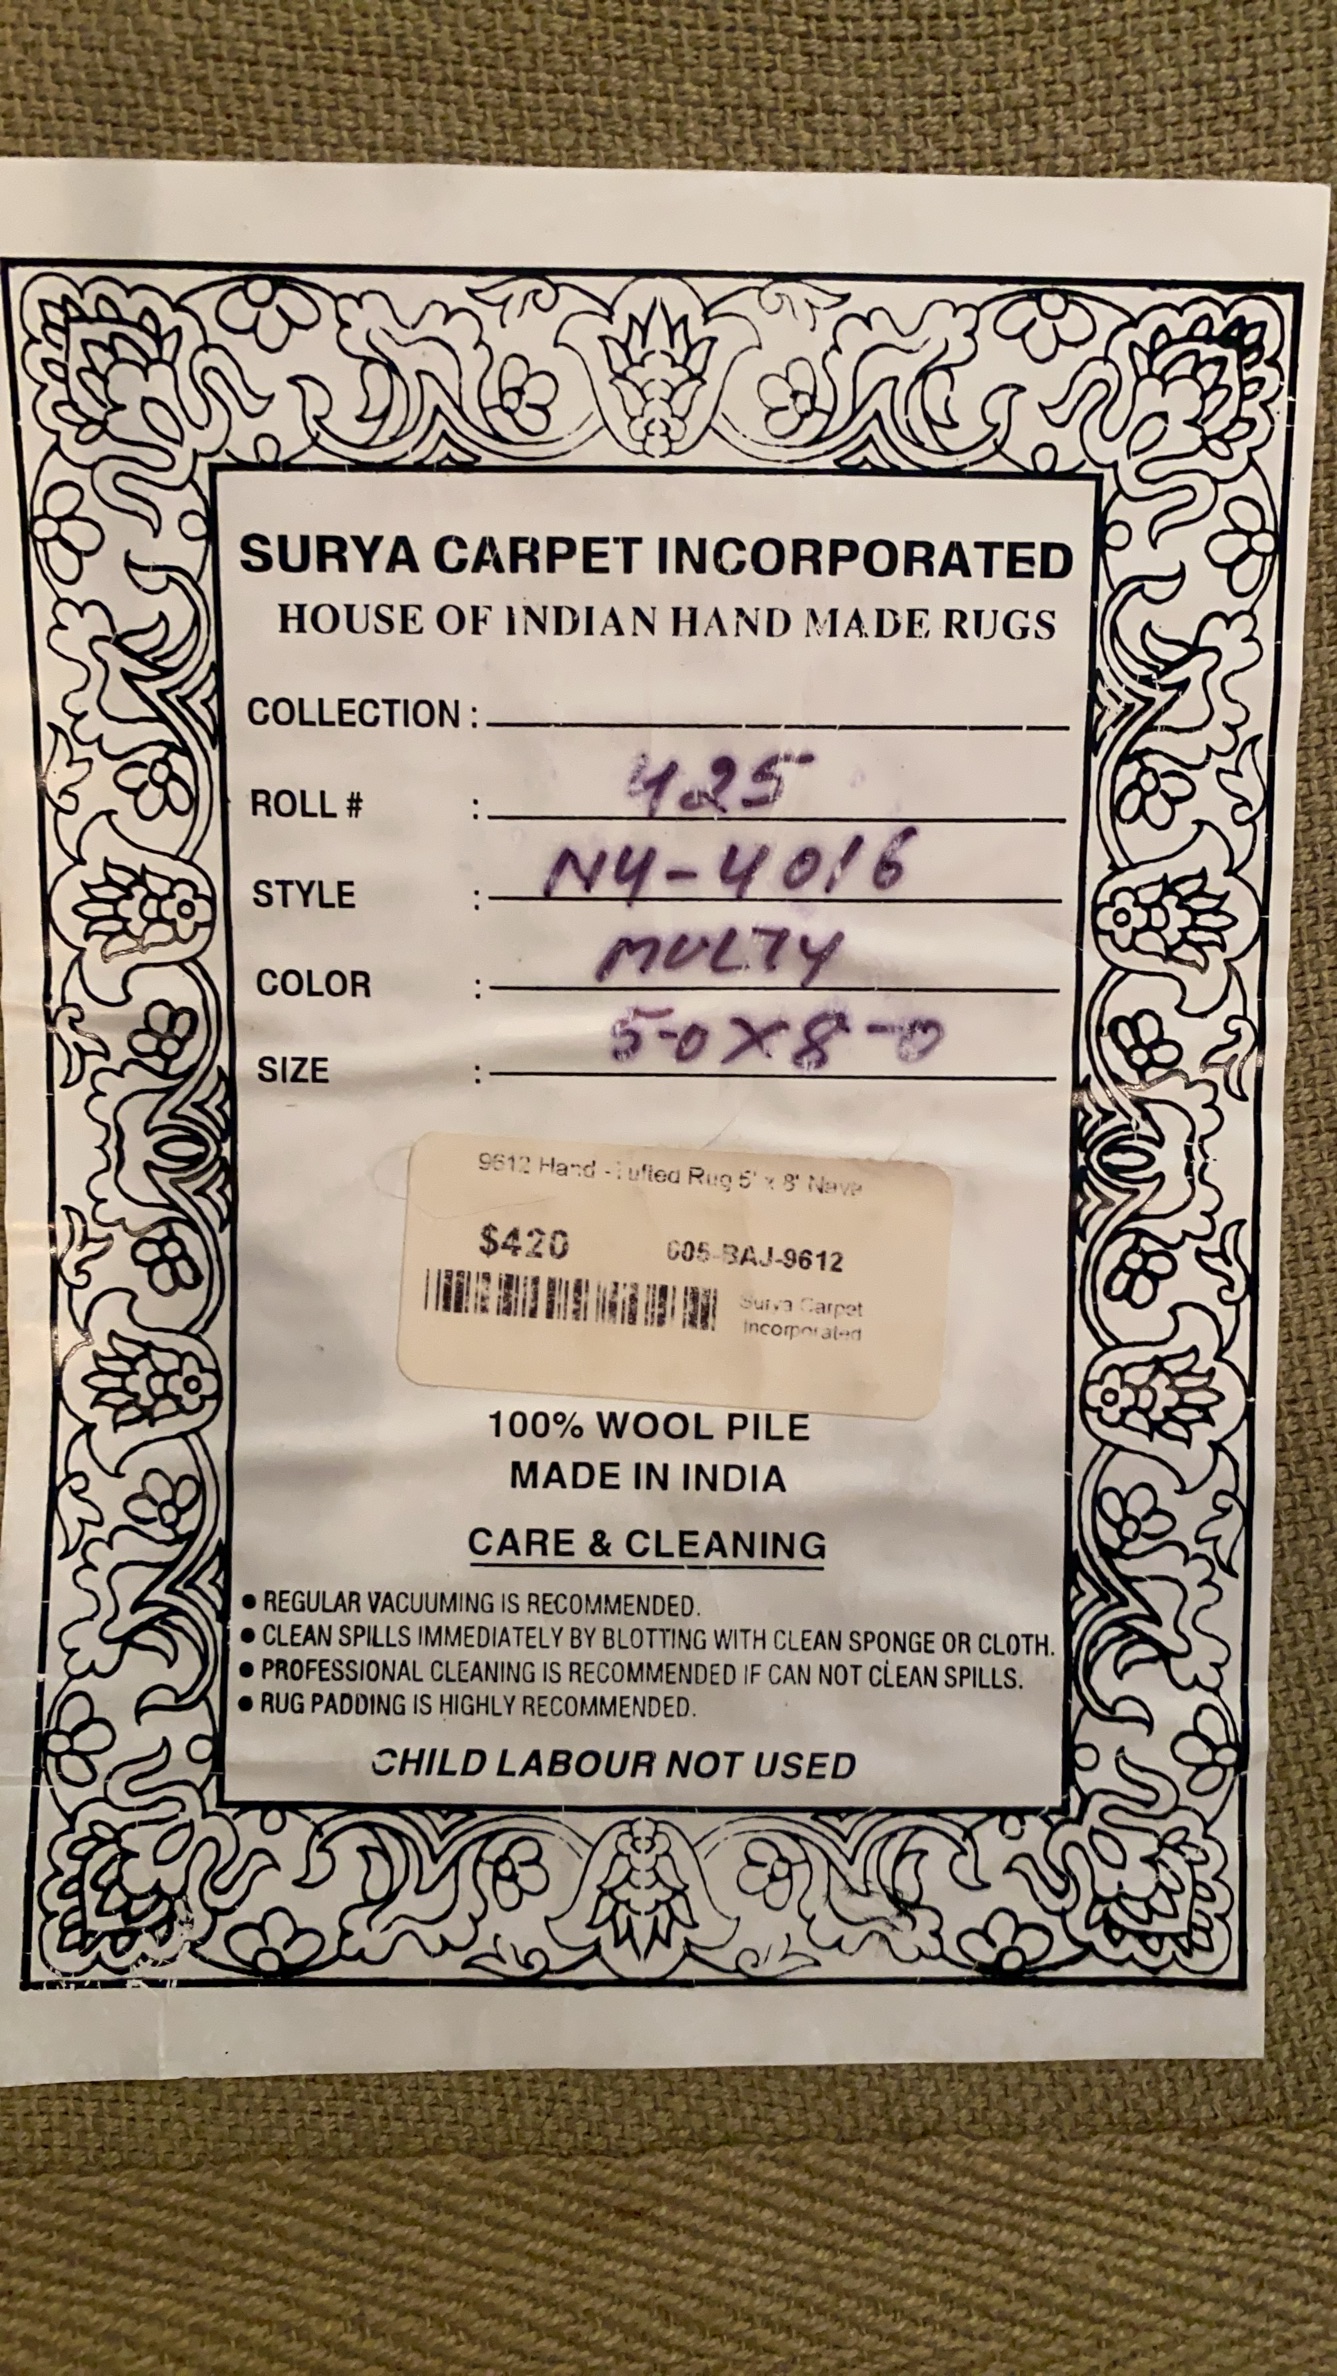 SURYA CARPET INCORPORATED
HOUSE OF INDIAN HAND MADE RUGS
COLLECTION :
ROLL # : 425
STYLE : NY-4016
COLOR : MULTY
SIZE : 5-0 X 8-0
9612 Hand-Tufted Rug 5' x 8'
$420 005-BAJ-9612
Surya Carpet
Incorporated
100% WOOL PILE
MADE IN INDIA
CARE & CLEANING
● REGULAR VACUUMING IS RECOMMENDED.
● CLEAN SPILLS IMMEDIATELY BY BLOTTING WITH CLEAN SPONGE OR CLOTH.
● PROFESSIONAL CLEANING IS RECOMMENDED IF CAN NOT CLEAN SPILLS.
● RUG PADDING IS HIGHLY RECOMMENDED.
CHILD LABOUR NOT USED